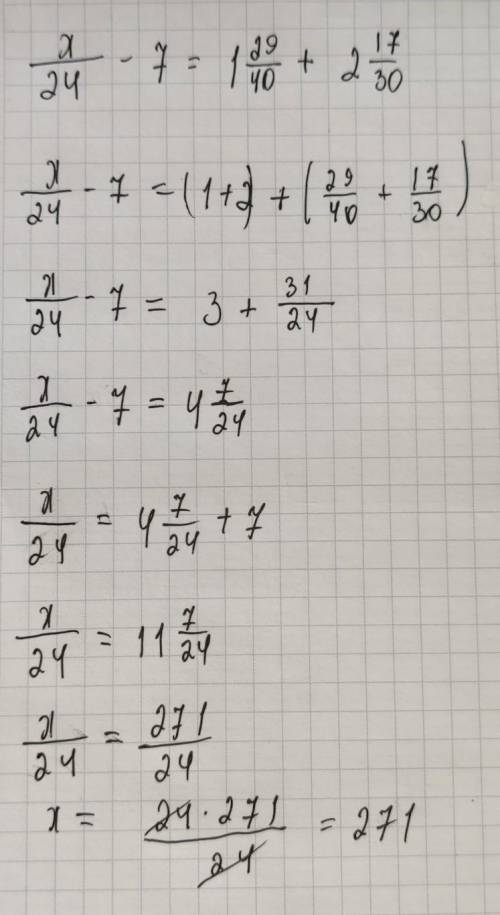 x/24 - 7 = 1 29/40 + 2 17/30
x/24 - 7 = (1+2) + (29/40 + 17/30)
x/24 - 7 = 3 + 31/24
x/24 - 7 = 4 7/24
x/24 = 4 7/24 + 7
x/24 = 11 7/24
x/24 = 271/24
x = 24 · 271/24 = 271